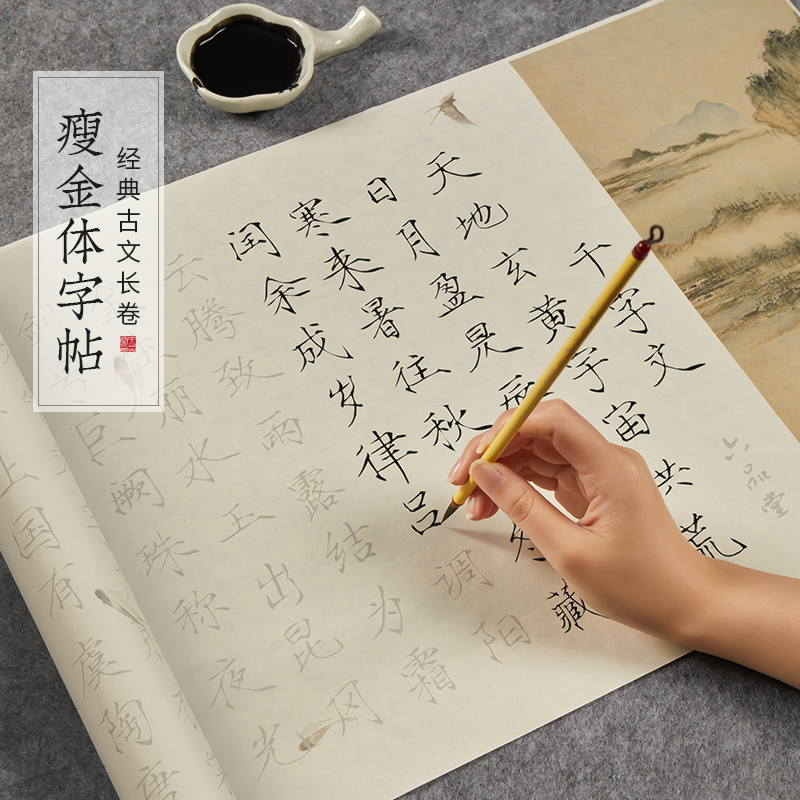 瘦金体字帖
经典古文长卷
千字文
天地玄黄宇宙洪荒
日月盈昃辰
寒来暑往秋冬藏
闰余成岁律吕调阳
云腾致雨露结为霜
丽水玉出昆冈
巨阙珠称夜光
国有虞陶唐
六品堂